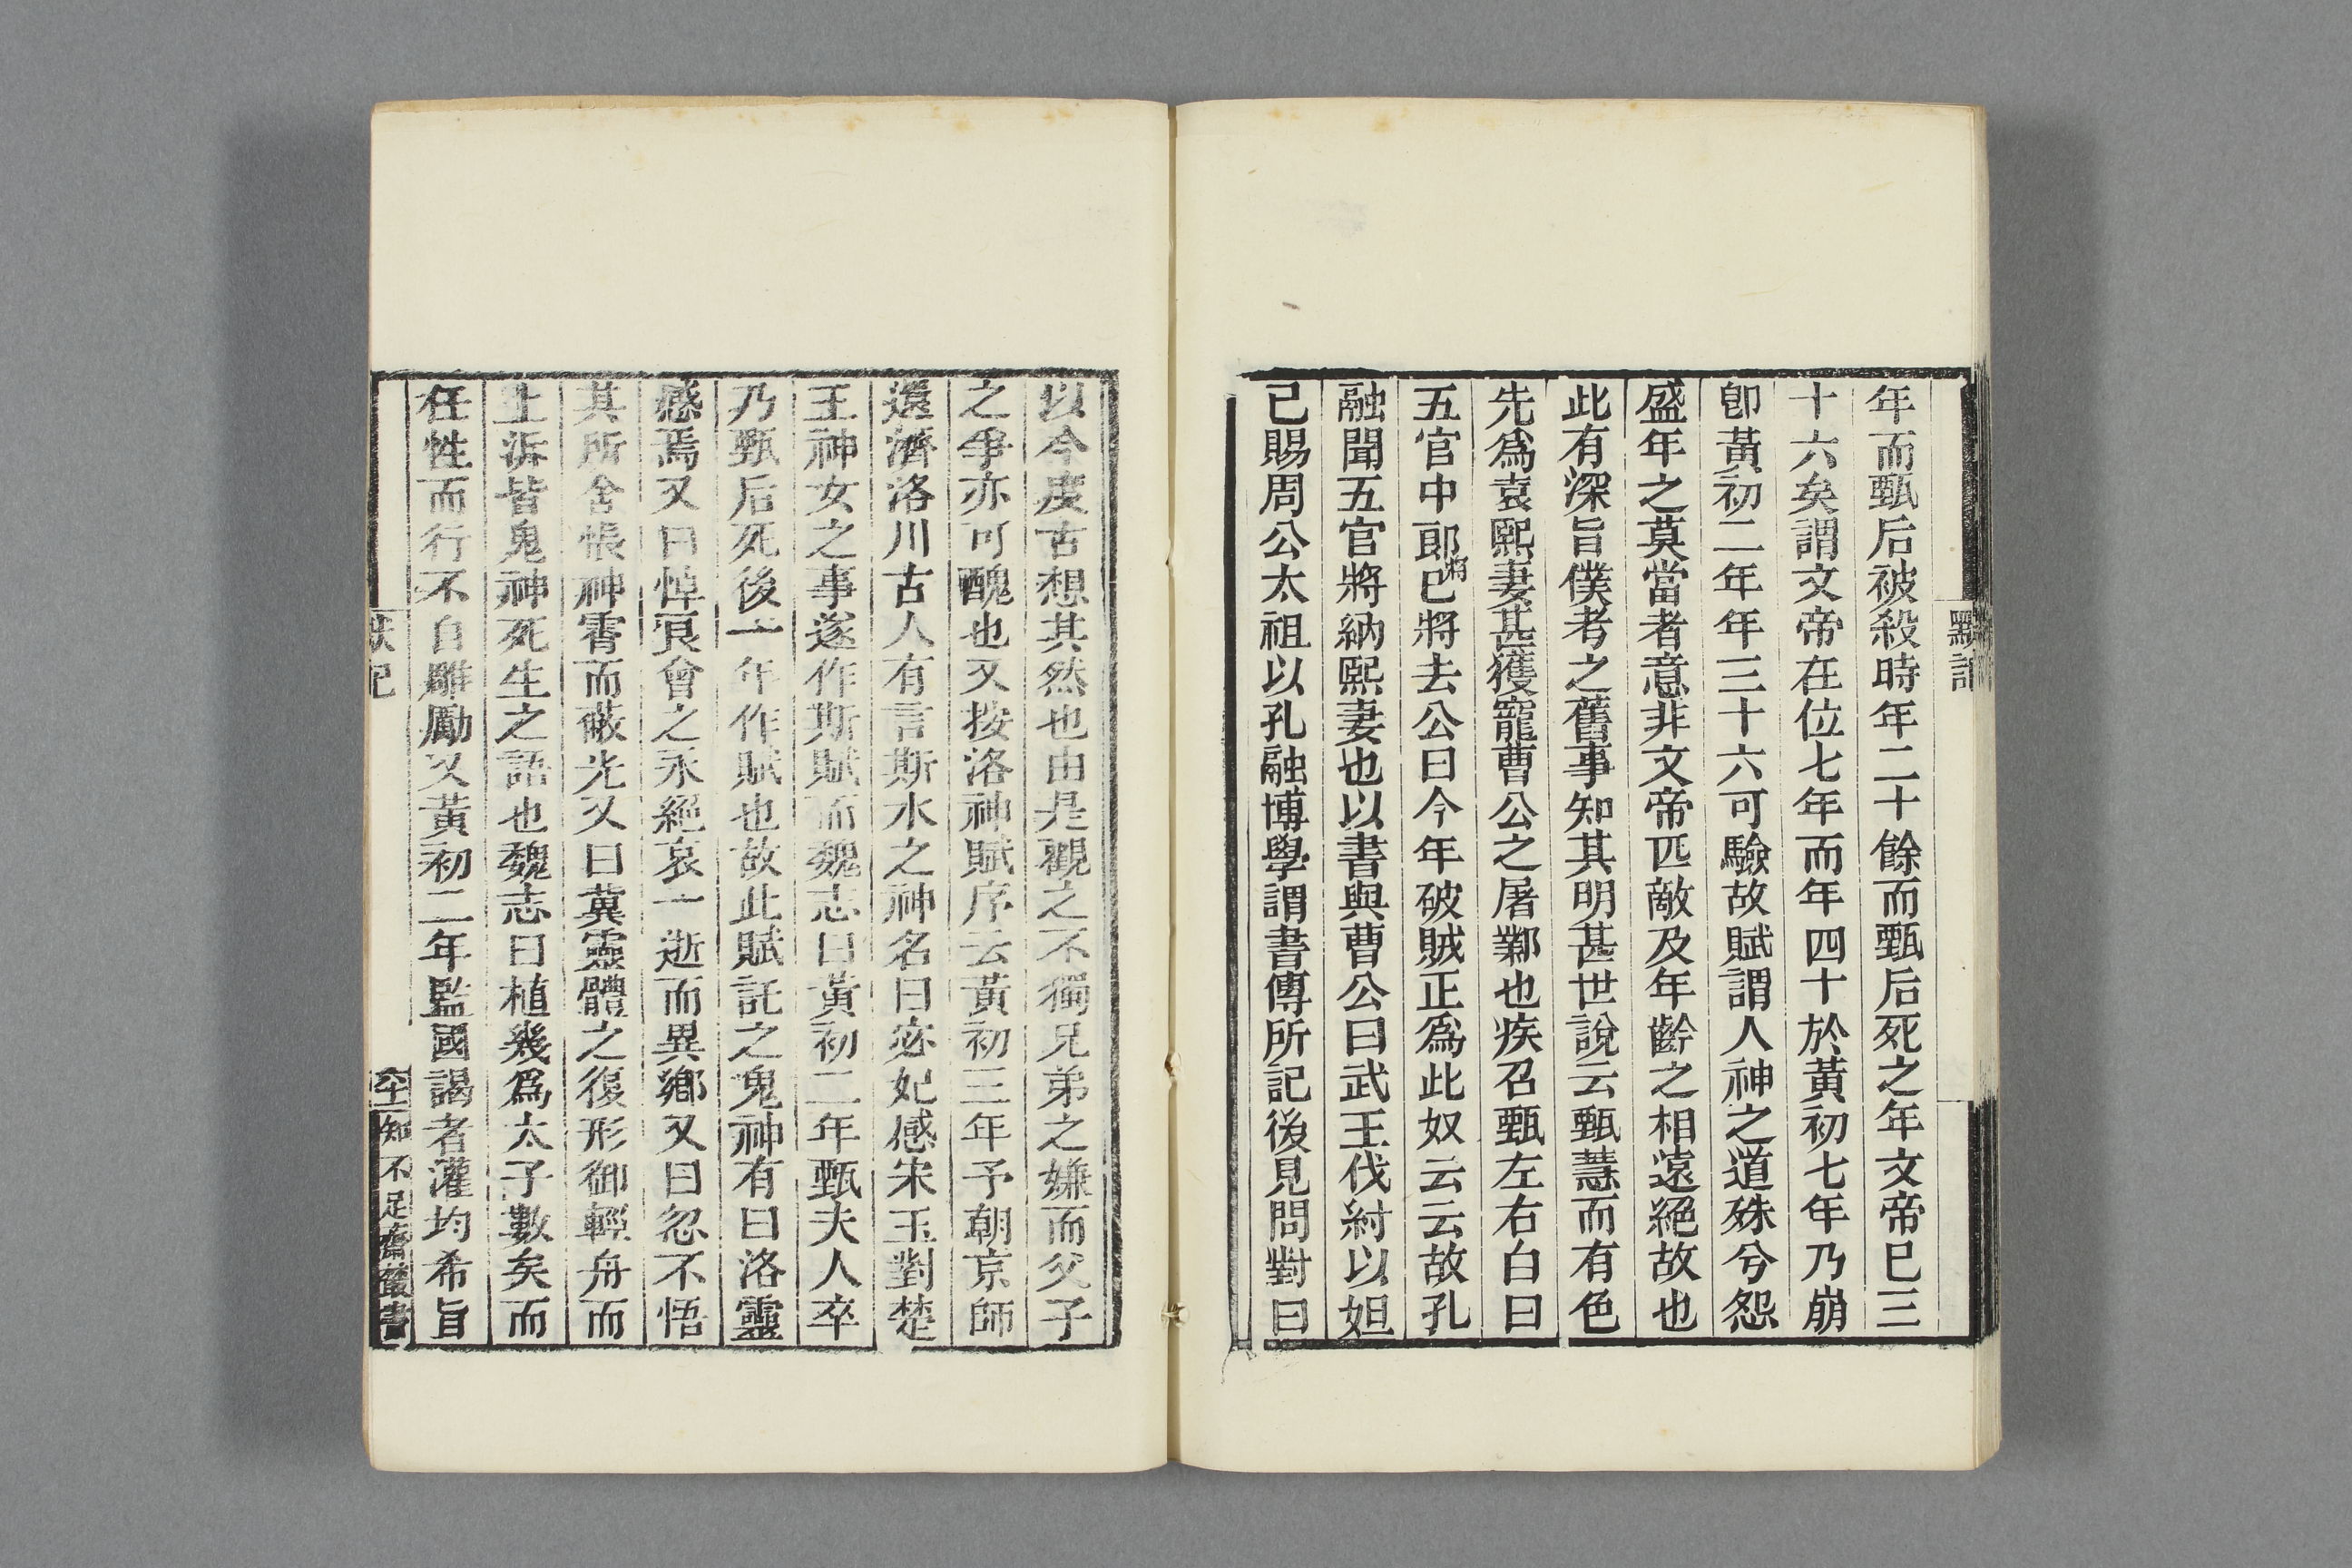 年而甄后被殺時年二十餘而甄后死之年文帝已三
十六矣謂文帝在位七年而年四十於黃初七年乃崩
卽黃初二年年三十六可驗故賦謂人神之道殊兮怨
盛年之莫當者意非文帝匹敵及年齡之相遠絕故也
此有深旨僕考之舊事知其明甚世說云甄慧而有色
先爲袁熙妻甚獲寵曹公之屠鄴也疾召甄左右白曰
五官中郞將已將去公曰今年破賊正爲此奴云云故孔
融聞五官將納熙妻也以書與曹公曰武王伐紂以妲
己賜周公太祖以孔融博學謂書傳所記後見問對曰
以今度古想其然也由是觀之不獨兄弟之嫌而父子
之爭亦可醜也又按洛神賦序云黃初三年予朝京師
還濟洛川古人有言斯水之神名曰宓妃感宋玉對楚
王神女之事遂作斯賦而魏志曰黃初二年甄夫人卒
乃甄后死後一年作賦也故此賦託之鬼神有曰洛靈
感焉又曰悼良會之永絕哀一逝而異鄉又曰忽不悟
其所舍悵神霄而蔽光又曰冀靈體之復形御輕舟而
上泝皆鬼神死生之語也魏志曰植幾爲太子數矣而
任性而行不自雕勵又黃初二年監國謁者灌均希旨
默記
知不足齋叢書